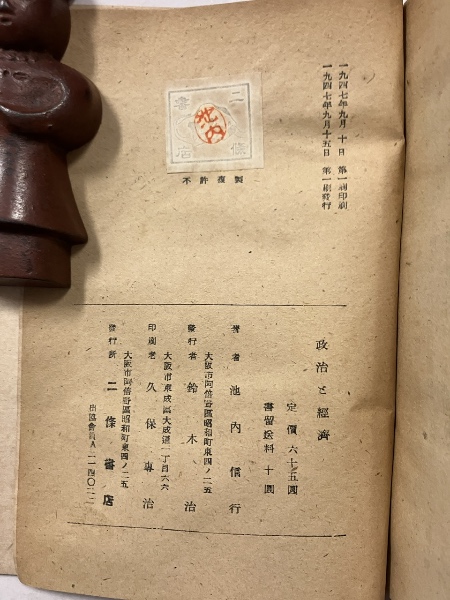 一九四七年九月十日 第一刷印刷
一九四七年九月十五日 第一刷發行
二條書店
池内
不許複製
政治と經濟
定價六十五圓
書留送料十圓
著者 池内信行
大阪市阿倍野區昭和町東四ノ二五
發行者 鈴木治
大阪市東成區大成通一丁目六六
印刷者 久保專治
大阪市阿倍野區昭和町東四ノ二五
發行所 二條書店
出協會員A二一四〇二二